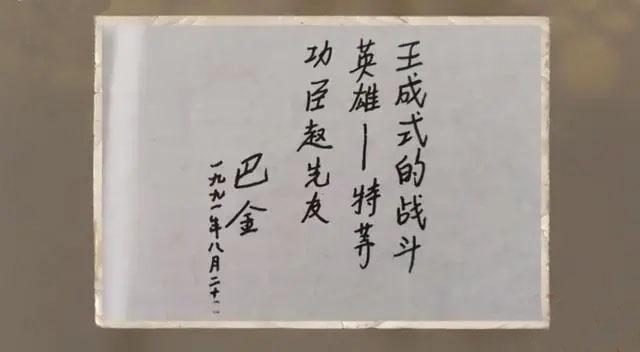 王成式的战斗
英雄—特等
功臣赵先友
巴金
一九九一年八月二十